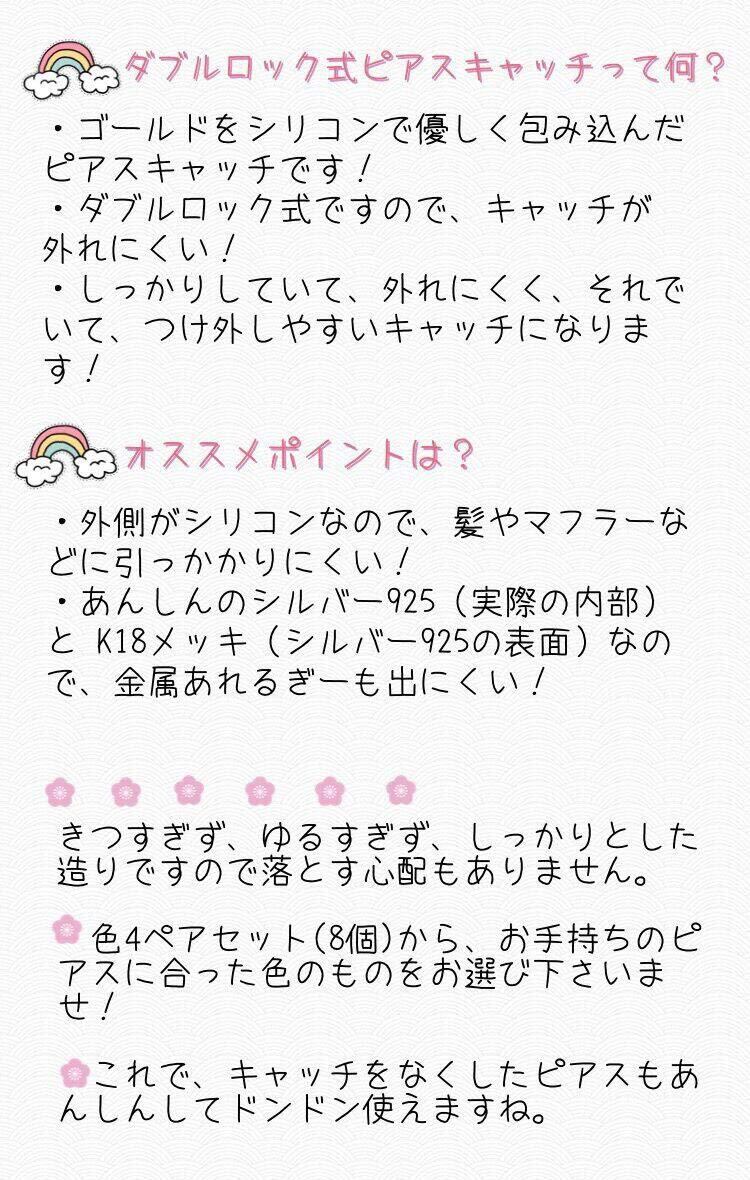 ダブルロック式ピアスキャッチって何？
・ゴールドをシリコンで優しく包み込んだ
ピアスキャッチです！
・ダブルロック式ですので、キャッチが
外れにくい！
・しっかりしていて、外れにくく、それで
いて、つけ外しやすいキャッチになりま
す！
オススメポイントは？
・外側がシリコンなので、髪やマフラーな
どに引っかかりにくい！
・あんしんのシルバー925（実際の内部）
と K18メッキ（シルバー925の表面）なの
で、金属あれるぎーも出にくい！
きつすぎず、ゆるすぎず、しっかりとした
造りですので落とす心配もありません。
色4ペアセット(8個)から、お手持ちのピ
アスに合った色のものをお選び下さいま
せ！
これで、キャッチをなくしたピアスもあ
んしんしてドンドン使えますね。